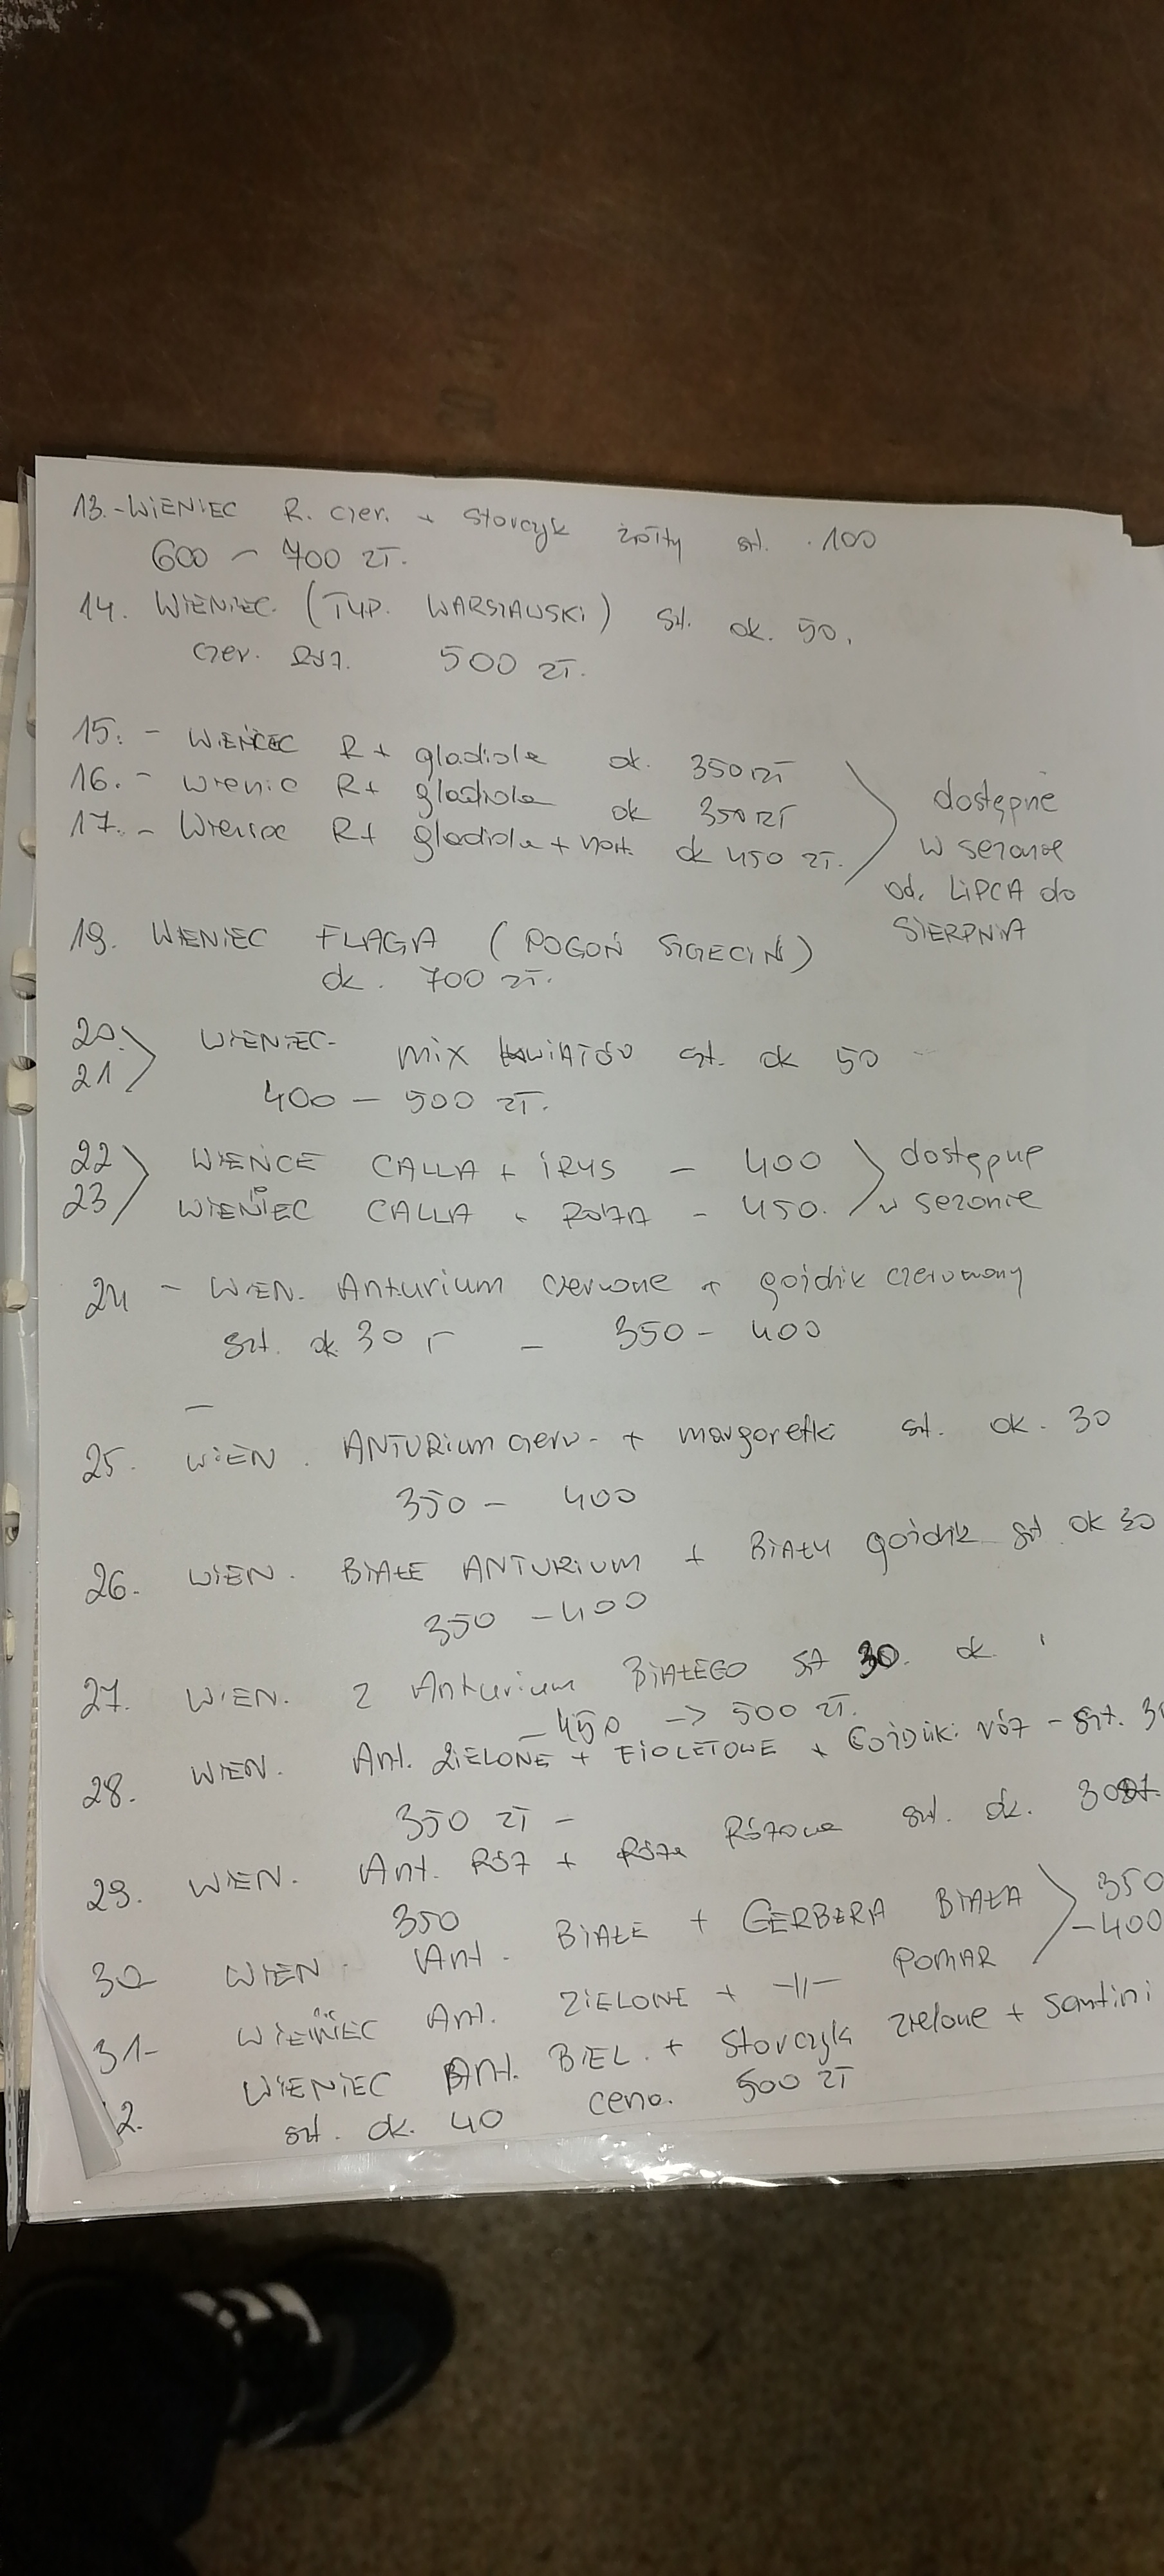 13.-WIENIEC R. czer. + storczyk żółty szt. 100
600 - 700 zł.
14. WIENIEC (TYP. WARSZAWSKI) szt. ok. 50.
czer. RÓŻ. 500 zł.
15. - WIENIEC R + gladiole ok. 350 zł
16. - wieniec R + gladiole ok 350 zł
17. - Wieniec R + gladiole + ok 450 zł.
dostępne
w sezonie
od. LIPCA do
SIERPNIA
19. WIENIEC FLAGA (POGOŃ SZCZECIN)
ok. 700 zł.
20.
21
WIENIEC- mix KWIATÓW szt. ok 50
400 - 500 zł.
22 WIEŃCE CALLA + IRYS - 400
23 WIENIEC CALLA + RÓŻA - 450.
dostępne
w sezonie
24 - WIEN. Anturium czerwone + goździk czerwony
szt. ok. 30 - 350 - 400
25. WIEN. ANTURIUM czerw. + margaretki szt. ok. 30
350 - 400
26. WIEN. BIAŁE ANTURIUM + BIAŁY goździk szt ok 30
350 - 400
27. WIEN. z Anturium BIAŁEGO szt 30. ok.
- 450 -> 500 zł.
28. WIEN. Ant. ZIELONE + FIOLETOWE + GOŹDZIK. RÓŻ - szt. 30
350 zł -
29. WIEN. Ant. RÓŻ + Róża RÓŻOWA szt. ok. 30
350
30 WIEN. Ant. BIAŁE + GERBERA BIAŁA
31- WIENIEC Ant. ZIELONE + -||- POMAR
350
-400
2. WIENIEC Ant. BIEL. + Storczyk zielone + Santini
szt. ok. 40 cena. 500 zł